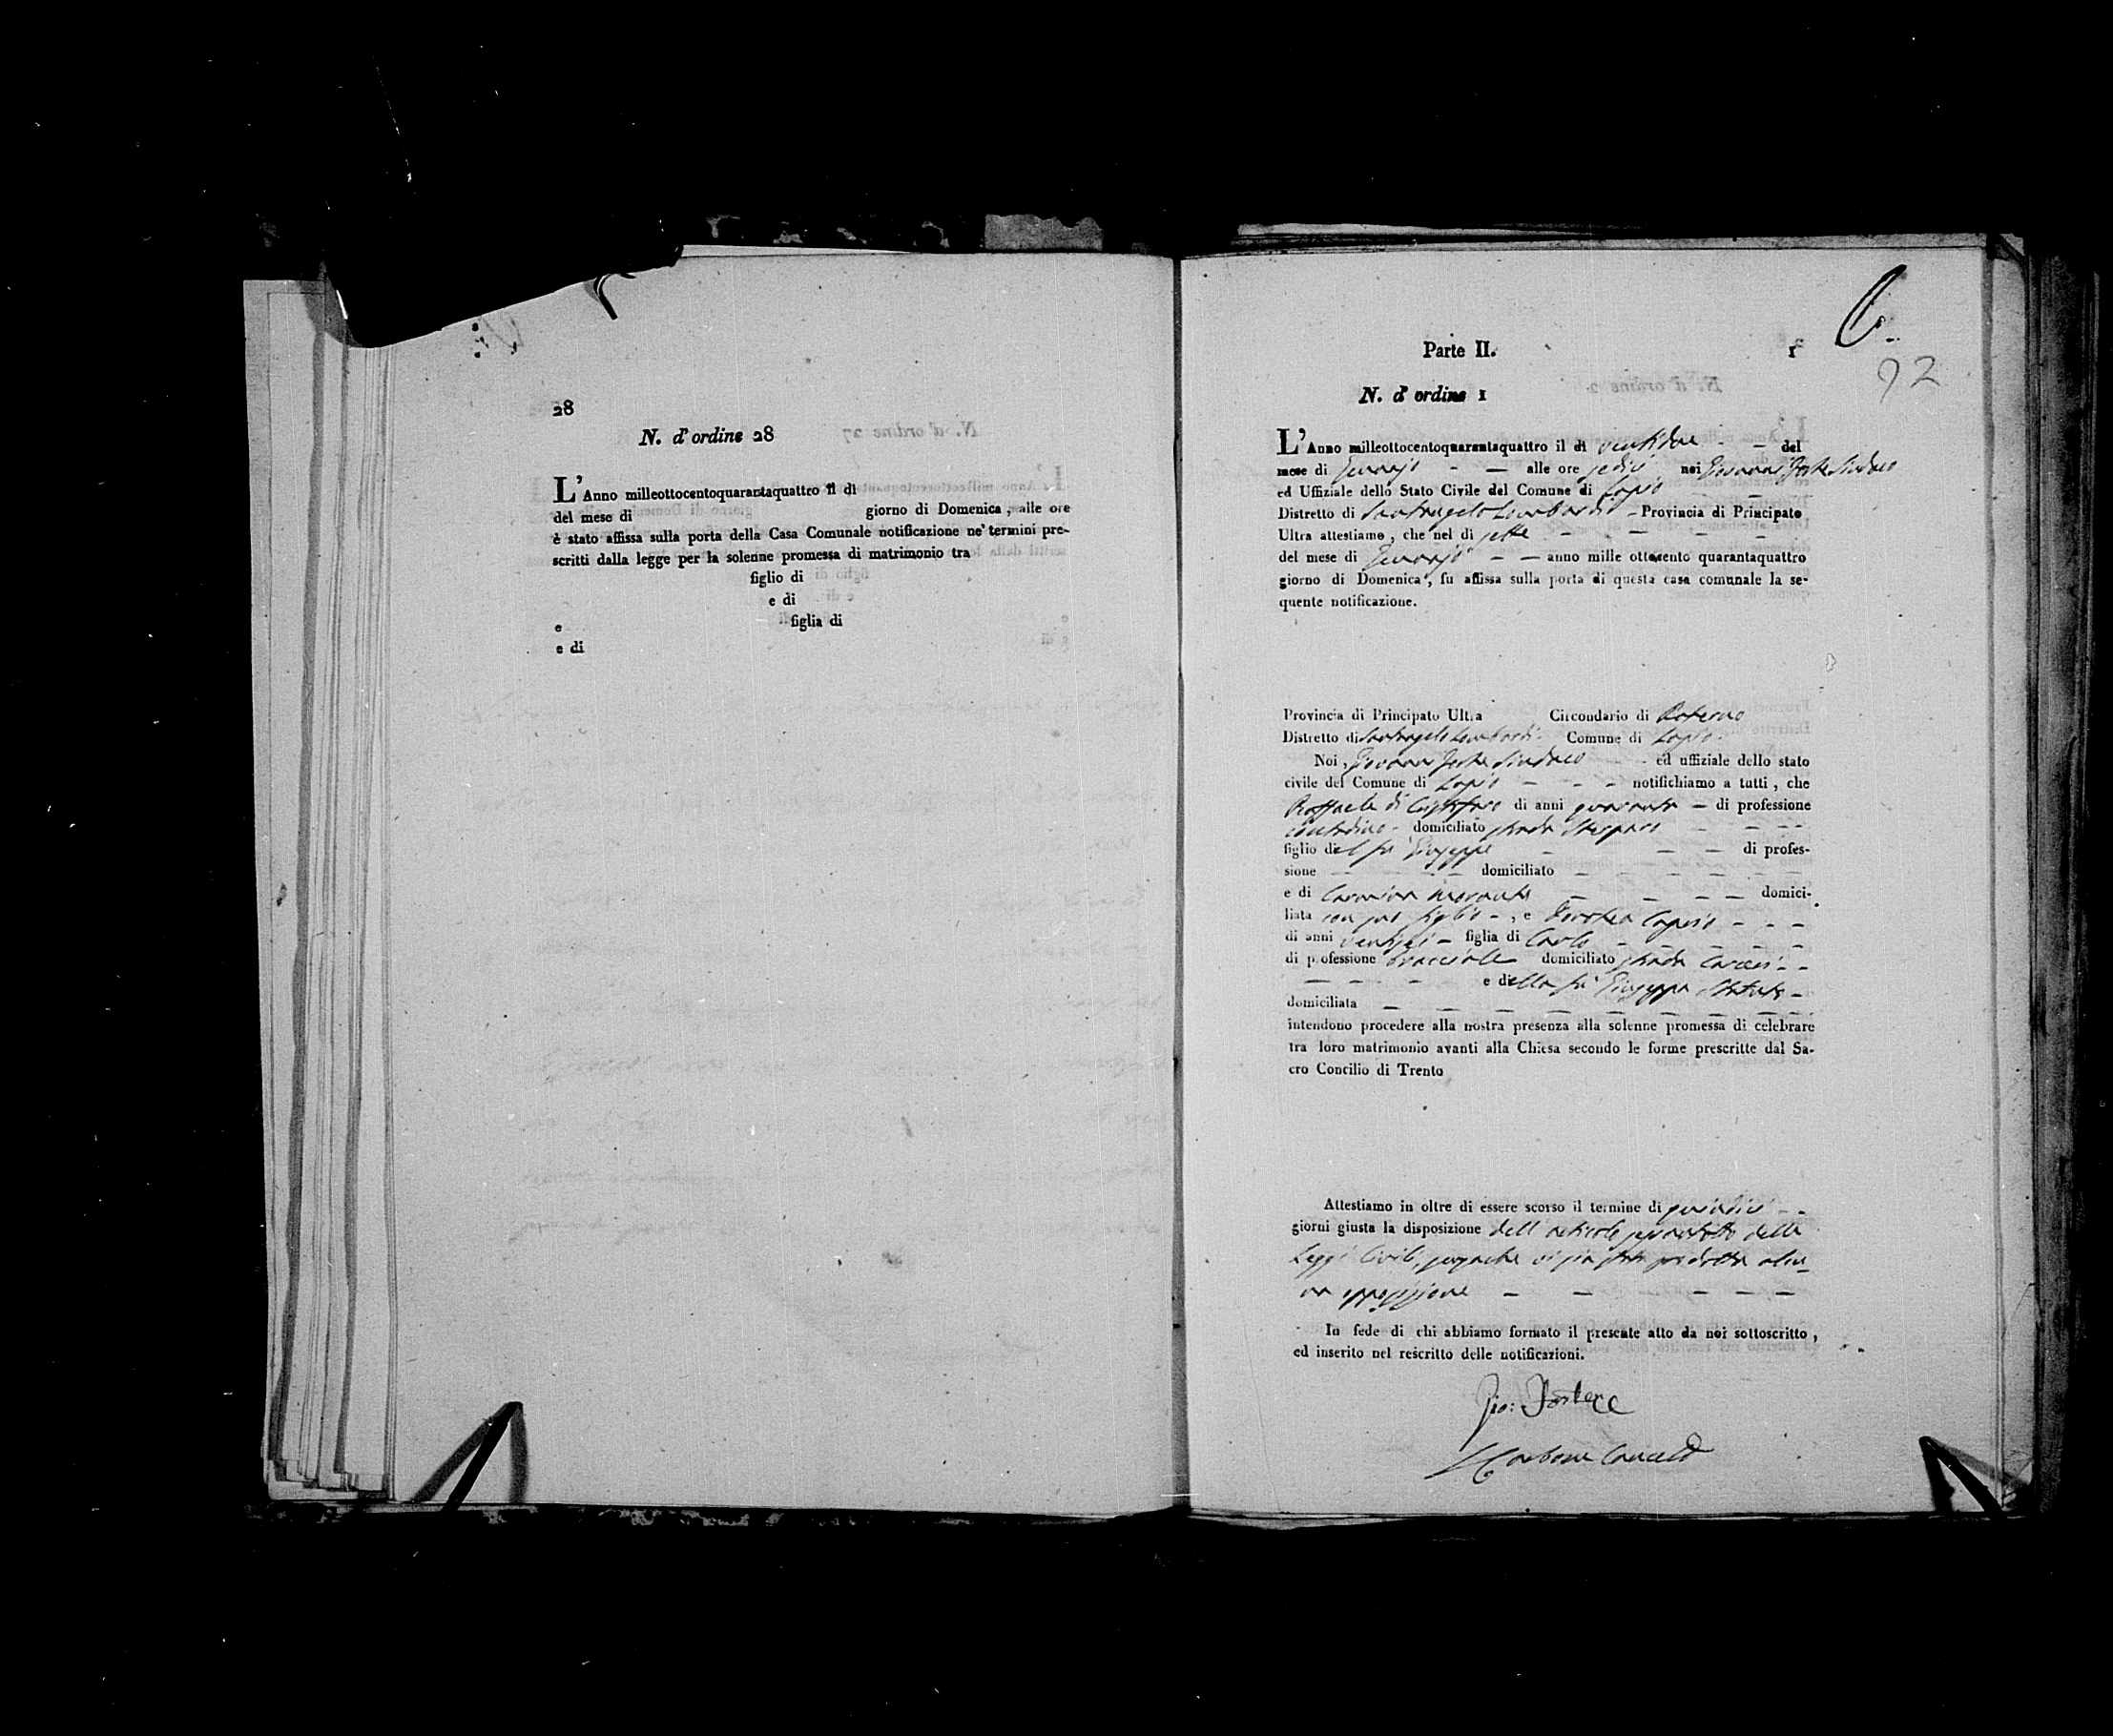 28
N. d'ordine 28
L'Anno milleottocentoquarantaquattro il di
del mese di giorno di Domenica, alle ore
è stato affissa sulla porta della Casa Comunale notificazione ne' termini pre-
scritti dalla legge per la solenne promessa di matrimonio tra
figlio di
e di
e figlia di
e di
Parte II. 1
92
N. d'ordine 1
L'Anno milleottocentoquarantaquattro il di ventidue del
mese di Gennajo alle ore sedici noi Giovanni Forte Sindaco
ed Uffiziale dello Stato Civile del Comune di Lapio
Distretto di Santangelo Lombardi Provincia di Principato
Ultra attestiamo, che nel di sette
del mese di Gennajo anno mille ottocento quarantaquattro
giorno di Domenica, fu affissa sulla porta di questa casa comunale la se-
quente notificazione.
Provincia di Principato Ultra Circondario di Paterno
Distretto di Santangelo Lombardi Comune di Lapio
Noi, Giovanni Forte Sindaco ed uffiziale dello stato
civile del Comune di Lapio notifichiamo a tutti, che
Raffaele di Cristofaro di anni quaranta di professione
contadino domiciliato strada
figlio del fu Giuseppe di profes-
sione domiciliato
e di Carmina Morante domici-
liata con suo figlio, e Dorotea Caprio
di anni ventisei figlia di Carlo
di professione bracciale domiciliato strada
e della fu Giuseppa
domiciliata
intendono procedere alla nostra presenza alla solenne promessa di celebrare
tra loro matrimonio avanti alla Chiesa secondo le forme prescritte dal Sa-
cro Concilio di Trento
Attestiamo in oltre di essere scorso il termine di quindici
giorni giusta la disposizione dell articolo sessantotto delle
Leggi Civili, senzache vi sia stata prodotta alcu-
na opposizione
In fede di chi abbiamo formato il presente atto da noi sottoscritto,
ed inserito nel rescritto delle notificazioni.
Gio: Forte
Carbone